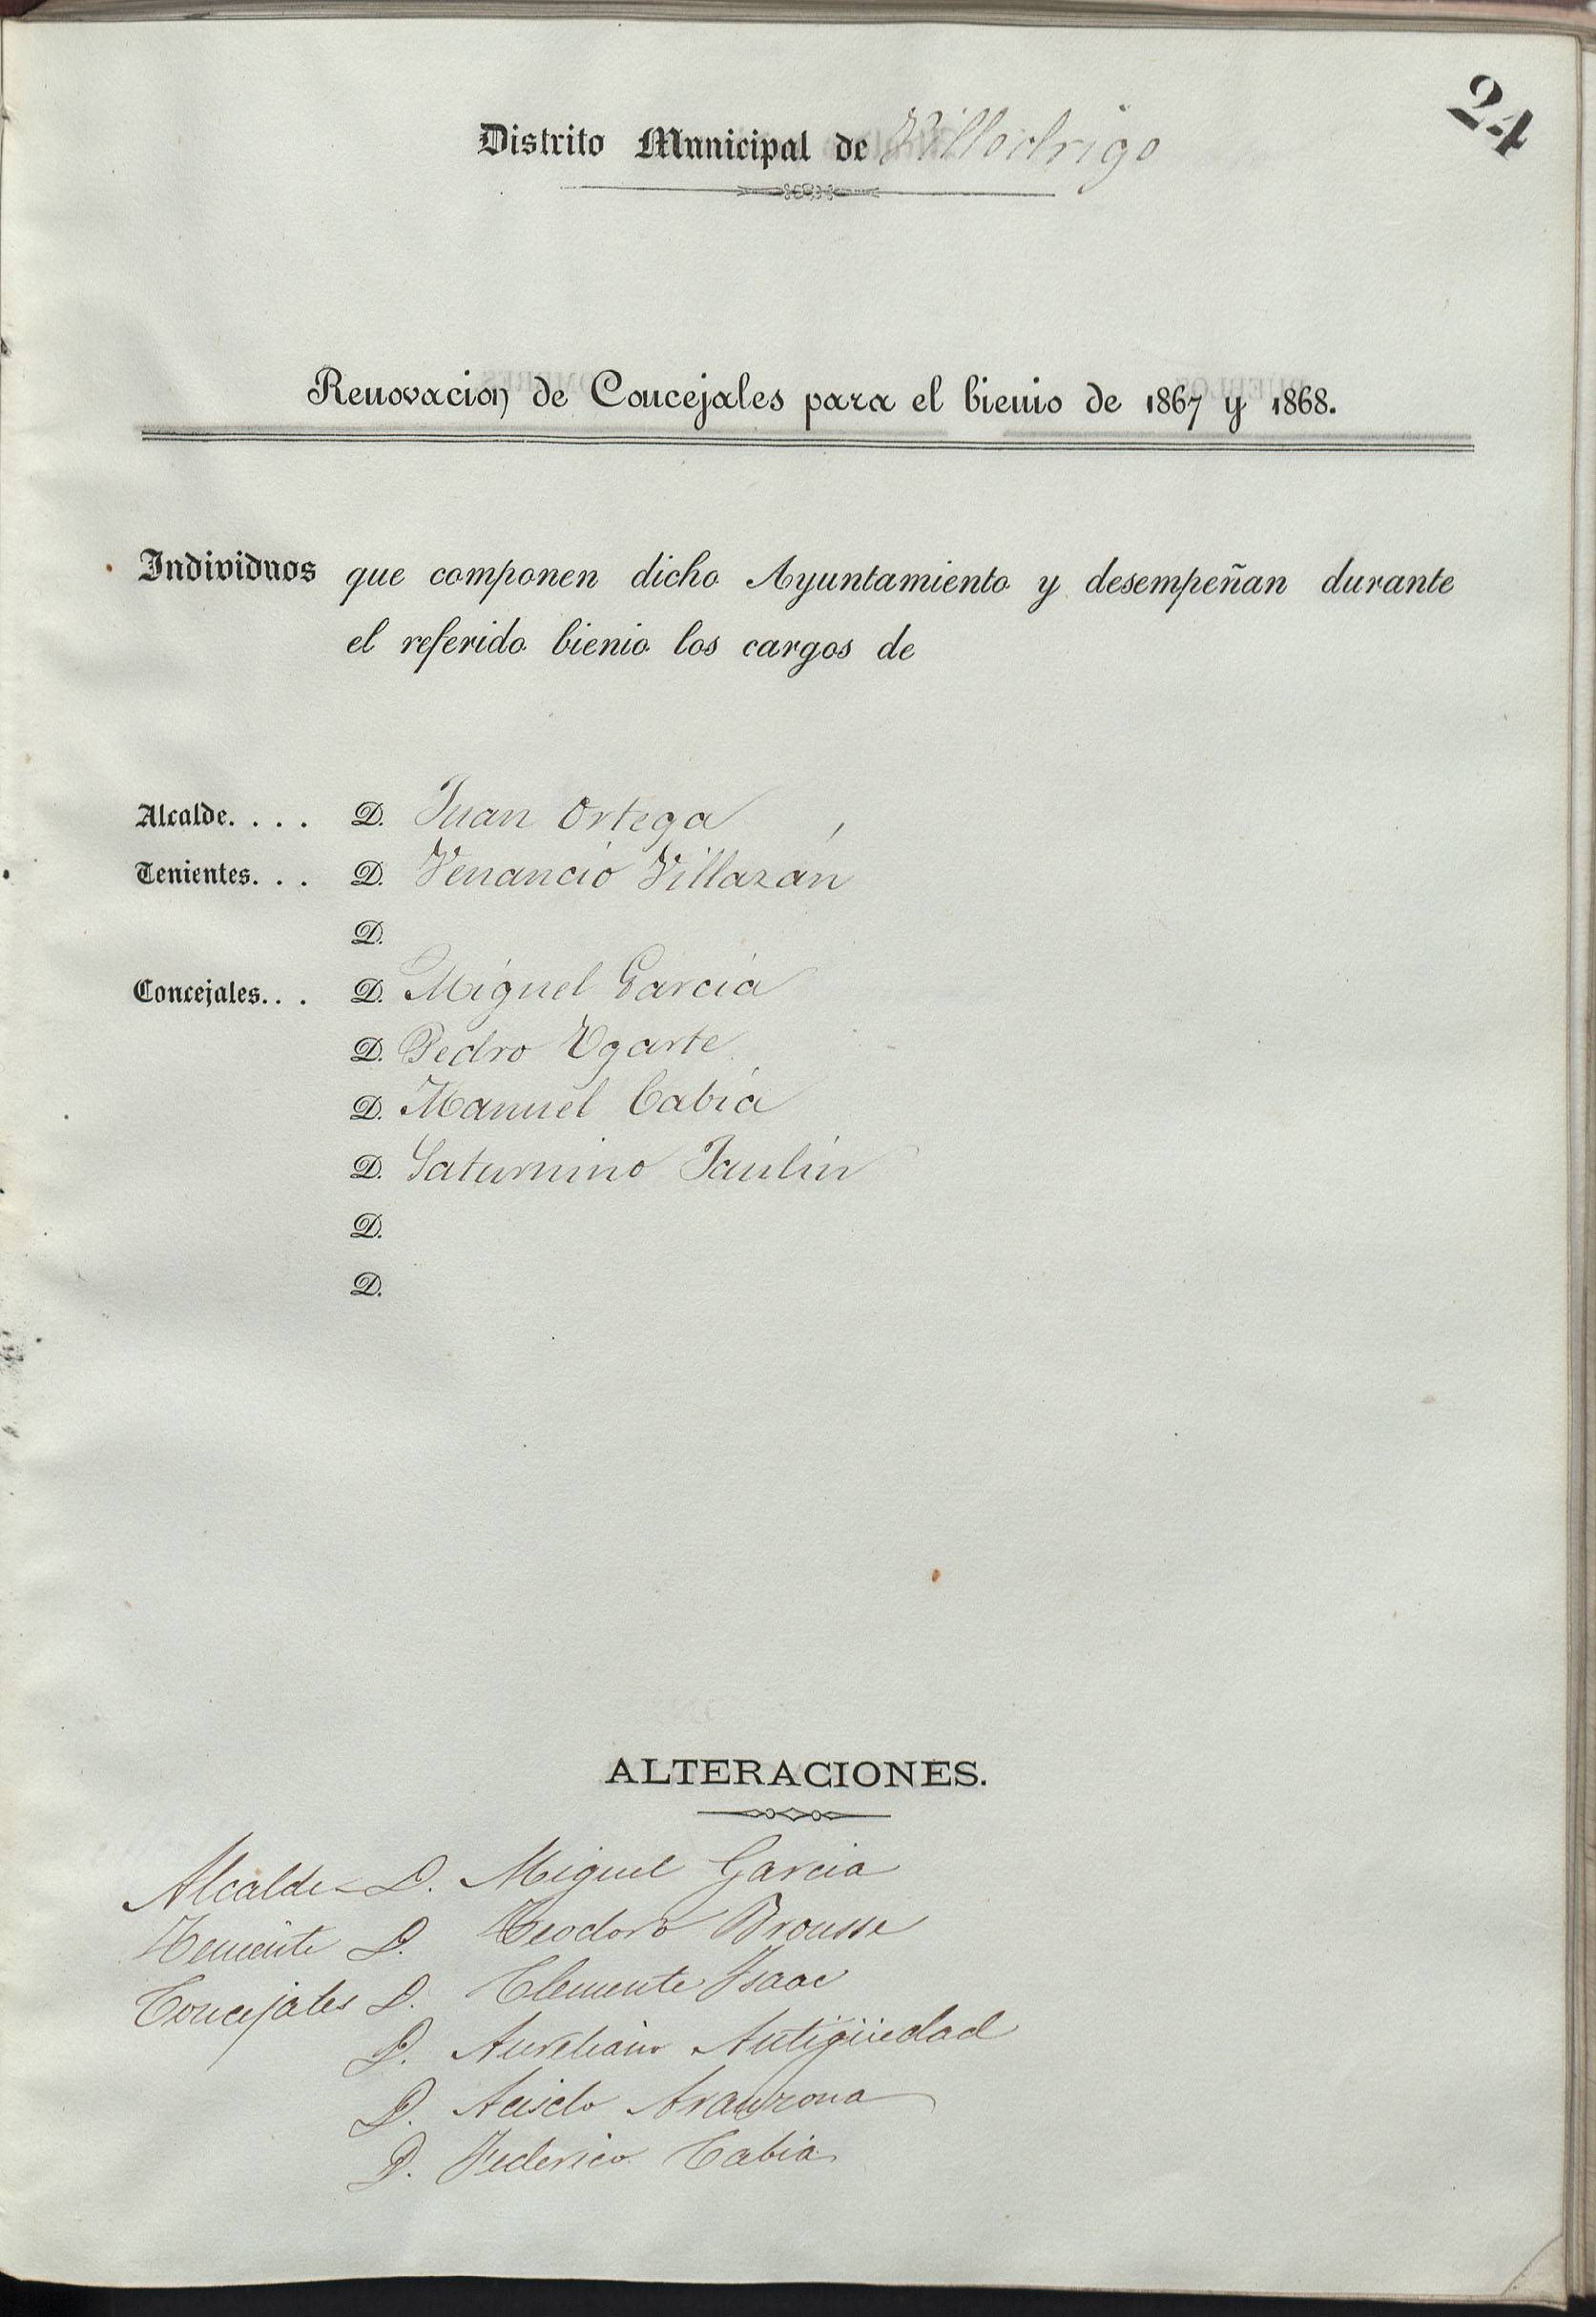 24
Distrito Municipal de Villodrigo
Renovacion de Concejales para el bienio de 1867 y 1868.
Individuos que componen dicho Ayuntamiento y desempeñan durante
el referido bienio los cargos de
Alcalde. . . . D. Juan Ortega
Tenientes. . . D. Venancio Villazán
D.
Concejales. . . D. Miguel García
D. Pedro Ugarte
D. Manuel Cabia
D. Saturnino Paulin
D.
D.
ALTERACIONES.
Alcalde - D. Miguel Garcia
Teniente D. Teodoro Brousse
Concejales D. Clemente Isaac
D. Aureliano Antigüedad
D. Acisclo Aranzona
D. Federico Cabia